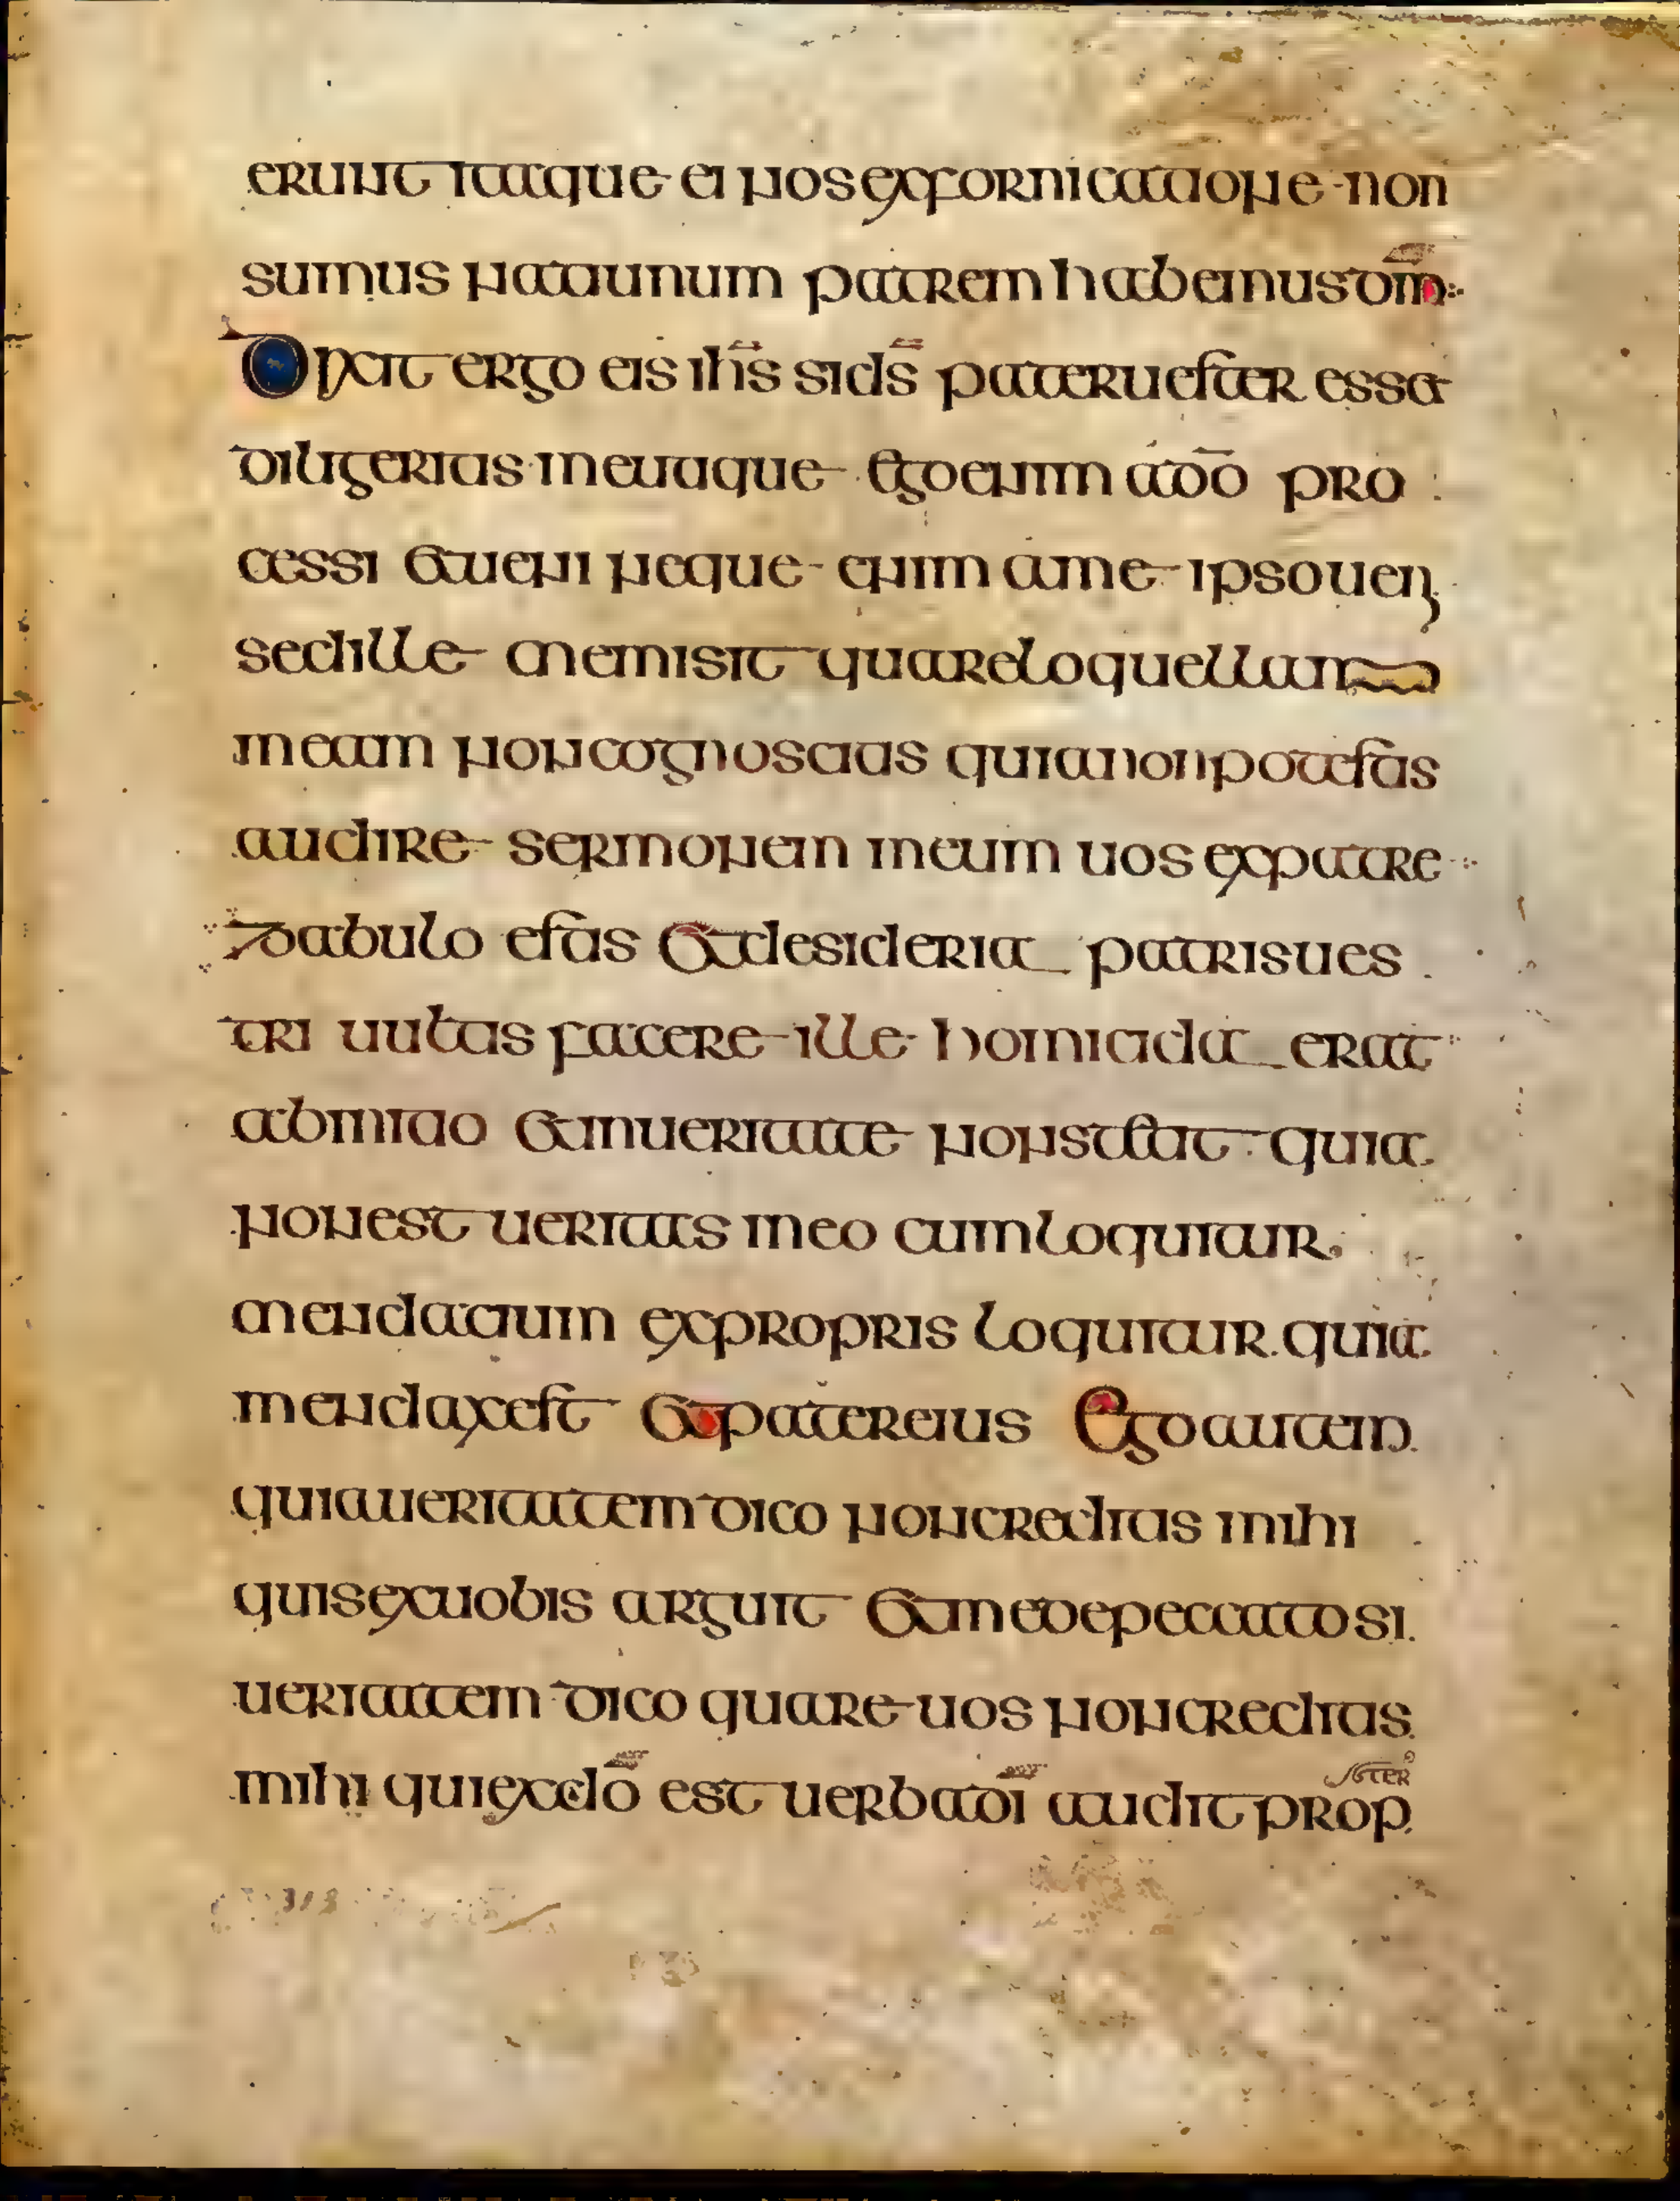 erunt itaque ei nos ex fornicatione non
sumus nati unum patrem habemus dm̄
Dixit ergo eis ihs̄ si ds̄ pater uester esset
diligeritis me utique Ego enim a dō pro
cessi et ueni neque enim a me ipso ueni
sed ille me misit quare loquellam
meam non cognoscitis quia non potestis
audire sermonem meum uos ex patre
zabulo estis et desideria patris ues
tri uultis facere ille homicida erat
ab initio et in ueritate non stetit quia
non est ueritas in eo cum loquitur
mendacium ex propris loquitur quia
mendax est et pater eius Ego autem
quia ueritatem dico non creditis mihi
quis ex uobis arguit et me de peccato si
ueritatem dico quare uos non creditis
mihi qui ex dō est uerba dī audit prop
ster